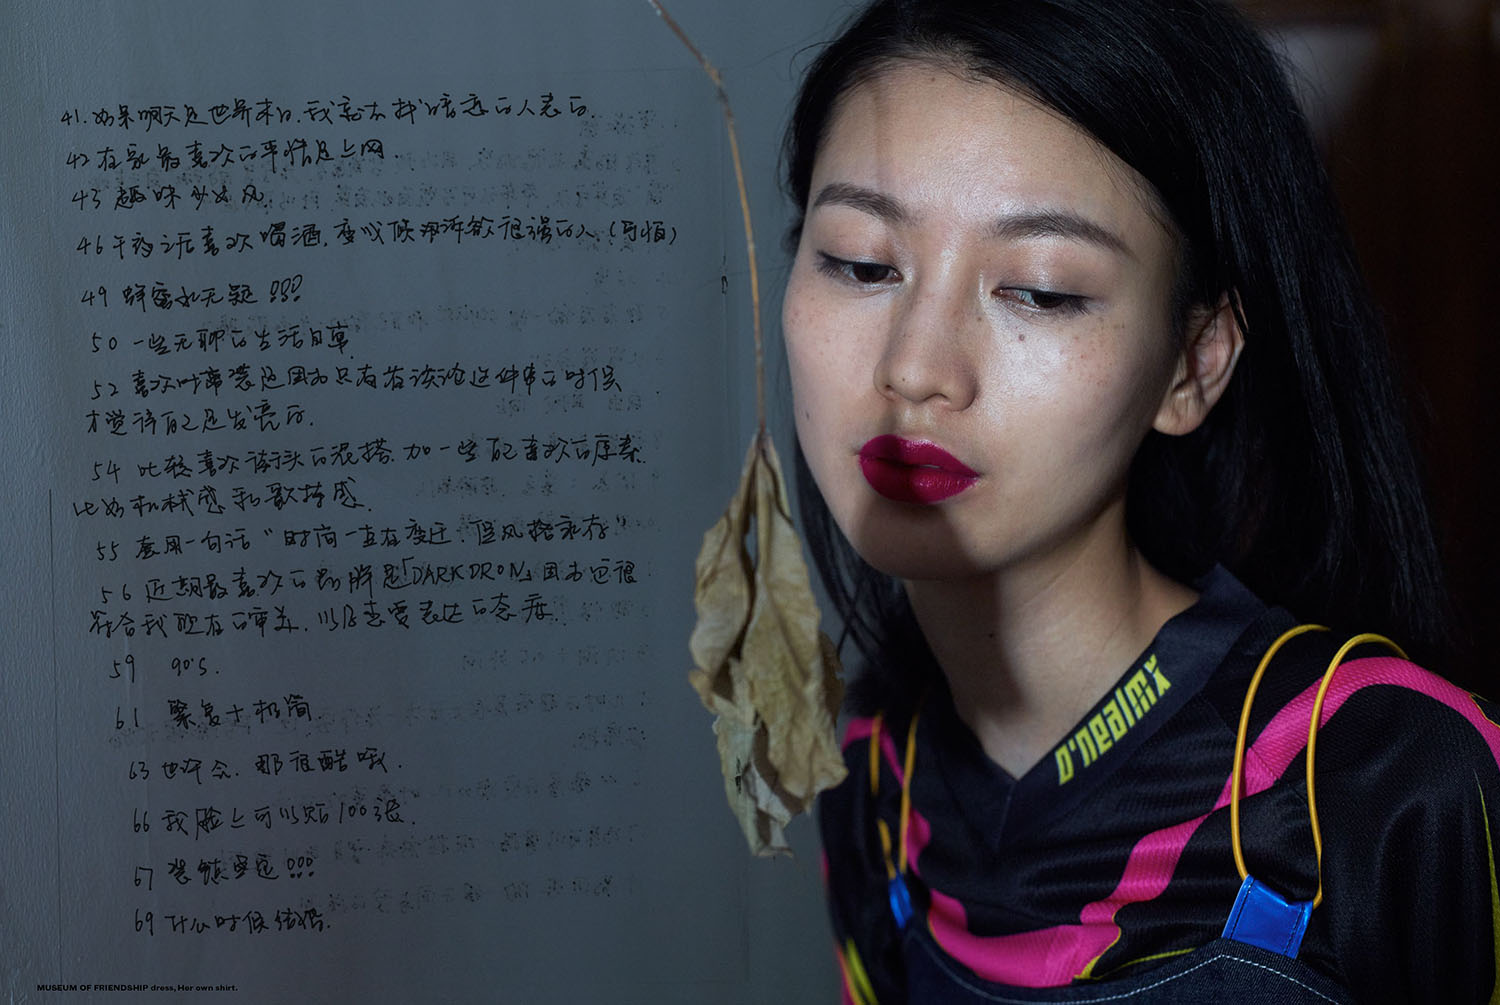 41. 如果明天是世界末日，我就去找暗恋的人表白.
42 在家最喜欢的事情是上网.
43 趣味少女风.
46 午夜之后喜欢喝酒，变成倾诉欲很强的人（可怕）
49 蜂蜜水无疑!!!
50 一些无聊的生活日常
52 喜欢时装是因为只有在谈论这件事的时候
才觉得自己是发亮的.
54 比较喜欢街头的混搭，加一些自己喜欢的元素.
比如机械感和
55 套用一句话 "时尚一直在变迁，但风格永存"
56 近期最喜欢的品牌是「DARKDRON」因为它很
符合我现在的审美，以及想要表达的态度.
59 90'S.
61 繁复+极简
63 也许会，那很酷哦.
66 我脸上可以贴100张.
67 装镇定!!!
69 什么时候结婚.
o'nealmx
MUSEUM OF FRIENDSHIP dress, Her own shirt.